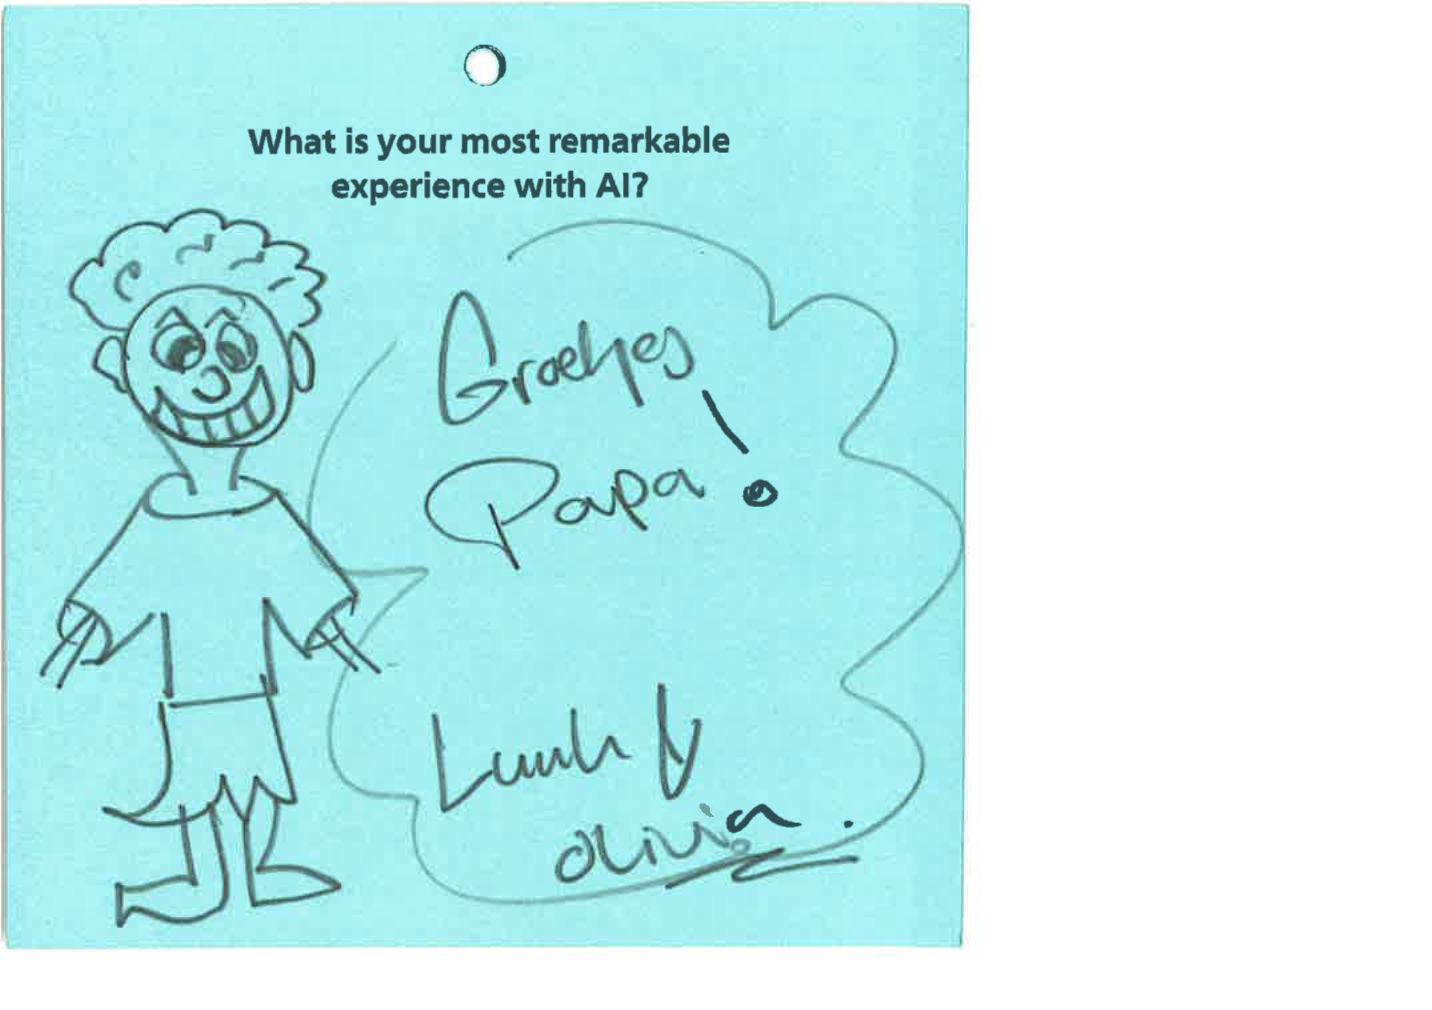 What is your most remarkable
experience with AI?
Groetjes
Papa!
Olivia.